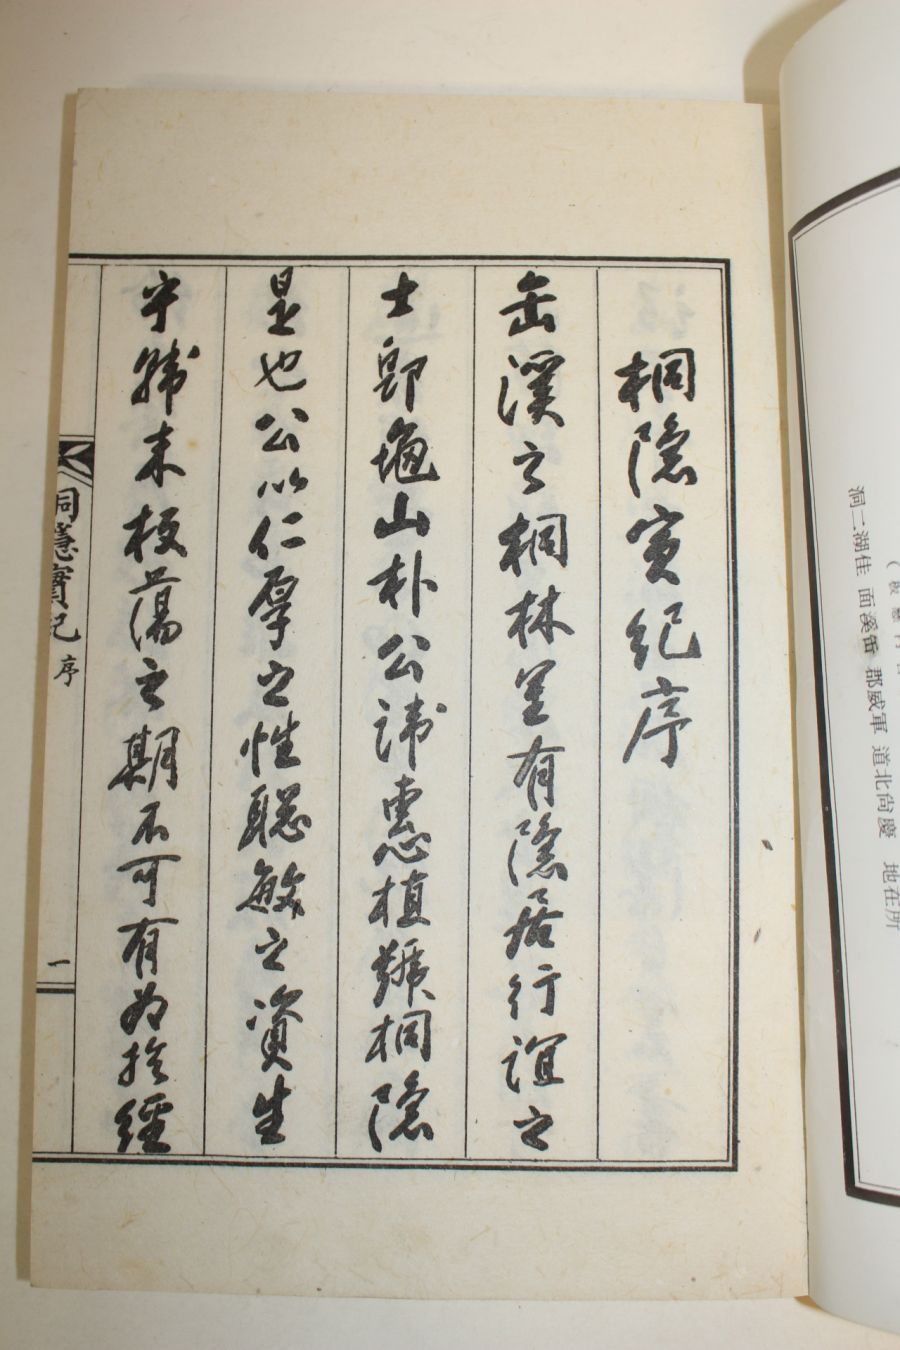 桐隱實紀序
缶溪之桐林里有隱居行誼之
士卽龜山朴公諱惠植號桐隱
是也公以仁厚之性聰敏之資生
于韓末板蕩之期不可有爲於經
桐隱實紀 序 一
所在地 慶尙北道 軍威郡 缶溪面 佳湖二洞